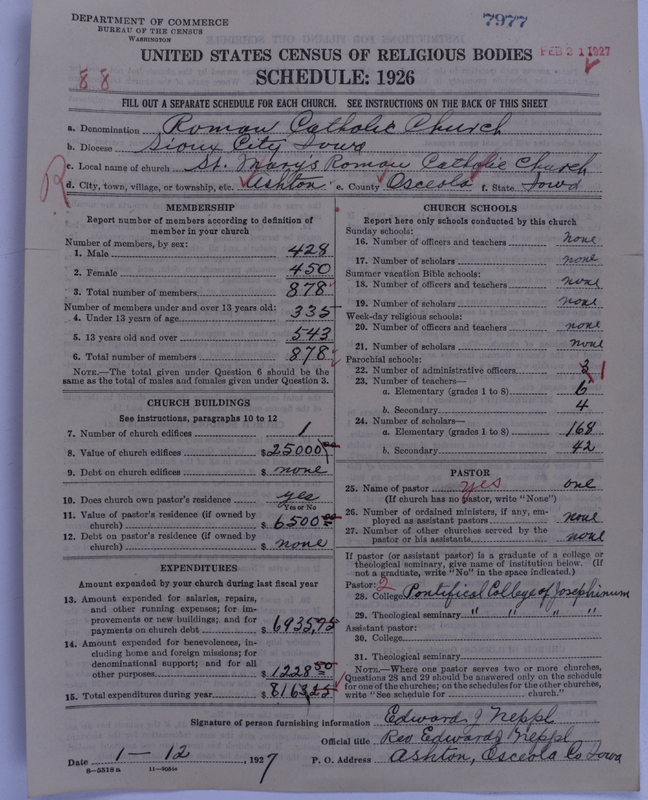 DEPARTMENT OF COMMERCE
BUREAU OF THE CENSUS
WASHINGTON
7977
UNITED STATES CENSUS OF RELIGIOUS BODIES
FEB 21 1927
88
SCHEDULE: 1926
FILL OUT A SEPARATE SCHEDULE FOR EACH CHURCH. SEE INSTRUCTIONS ON THE BACK OF THIS SHEET
a. Denomination Roman Catholic Church
b. Diocese Sioux City Iowa
c. Local name of church St. Mary's Roman Catholic Church
R
d. City, town, village, or township, etc. Ashton e. County Osceola f. State Iowa
MEMBERSHIP
Report number of members according to definition of
member in your church
Number of members, by sex:
1. Male 428
2. Female 450
3. Total number of members 878
Number of members under and over 13 years old:
4. Under 13 years of age 335
5. 13 years old and over 543
6. Total number of members 878
NOTE.—The total given under Question 6 should be the
same as the total of males and females given under Question 3.
CHURCH BUILDINGS
See instructions, paragraphs 10 to 12
7. Number of church edifices 1
8. Value of church edifices $25000 00
9. Debt on church edifices $ none
10. Does church own pastor's residence yes
Yes or No
11. Value of pastor's residence (if owned by
church) $ 6500 00
12. Debt on pastor's residence (if owned by
church) $ none
EXPENDITURES
Amount expended by your church during last fiscal year
13. Amount expended for salaries, repairs,
and other running expenses; for im-
provements or new buildings; and for
payments on church debt $ 6935,75
14. Amount expended for benevolences, in-
cluding home and foreign missions; for
denominational support; and for all
other purposes $ 1228 50
15. Total expenditures during year $ 8163,25
CHURCH SCHOOLS
Report here only schools conducted by this church
Sunday schools:
16. Number of officers and teachers none
17. Number of scholars none
Summer vacation Bible schools:
18. Number of officers and teachers none
19. Number of scholars none
Week-day religious schools:
20. Number of officers and teachers none
21. Number of scholars none
Parochial schools:
22. Number of administrative officers 1
23. Number of teachers—
a. Elementary (grades 1 to 8) 6
b. Secondary 4
24. Number of scholars—
a. Elementary (grades 1 to 8) 168
b. Secondary 42
PASTOR
25. Name of pastor yes one
(If church has no pastor, write "None")
26. Number of ordained ministers, if any, em-
ployed as assistant pastors none
27. Number of other churches served by the
pastor or his assistants none
If pastor (or assistant pastor) is a graduate of a college or
theological seminary, give name of institution below. (If
not a graduate, write "No" in the space indicated.)
Pastor: 2
28. College Pontifical College of Josephinum
29. Theological seminary " " " "
Assistant pastor:
30. College
31. Theological seminary
NOTE.—Where one pastor serves two or more churches,
Questions 28 and 29 should be answered only on the schedule
for one of the churches; on the schedules for the other churches,
write "See schedule for church."
Signature of person furnishing information Edward J Neppl
Official title Rev Edward J Neppl
Date 1 — 12, 1927 P. O. Address Ashton, Osceola Co Iowa
8—5518 a